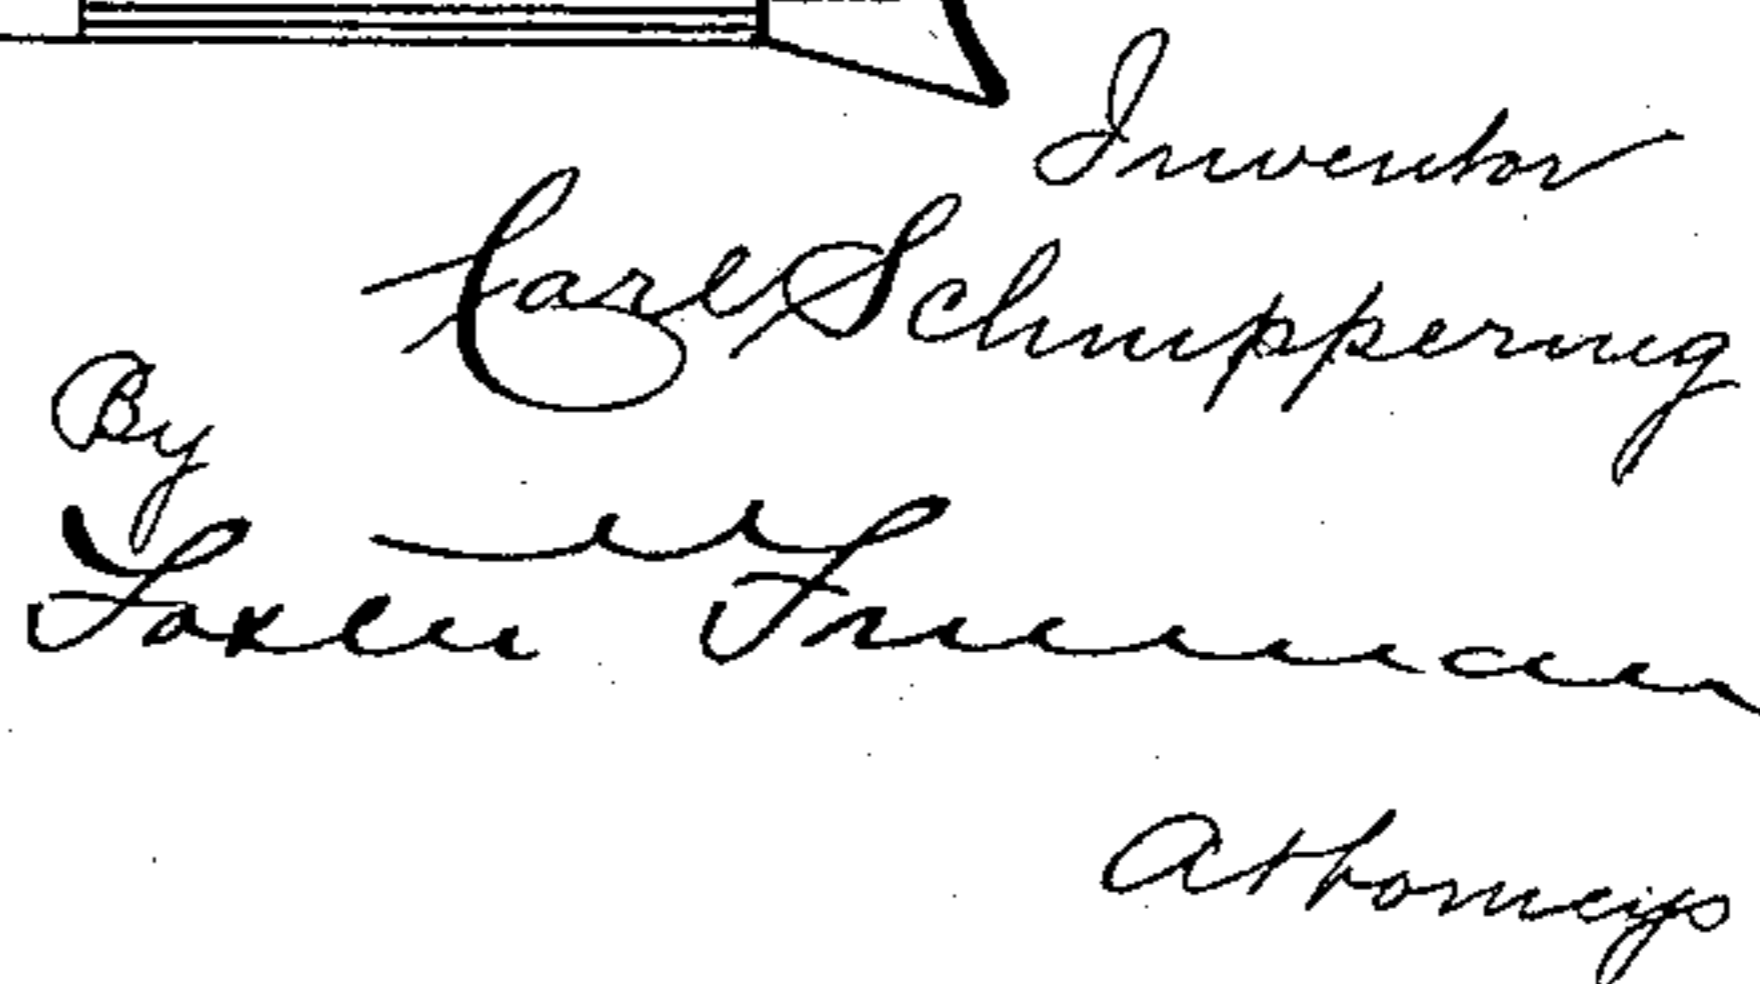 Inventor
Carl Schnippering
By
Foster Freeman
Attorneys